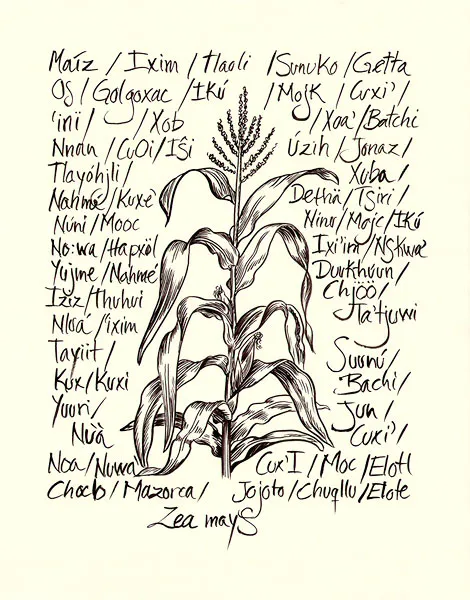 Maíz / Ixim / Tlaoli / Sunuko / Getta
Os / Golgoxac / IKú / MojK / Cuxi' /
'ini / / Xob / Xoa' / Batchi
Nnan / CuOi / Iŝi Úzih / Jonaz /
Tlayóhjli / Xuba /
Nahmé / Kuxe' Dethä / Tsiri /
Núni / Mooc Ninu / Mojc / IKú
No:wa / Hapxöl Ixi'im / Nskwa'
Yujme / Nahmé Duukhuun /
Iziz / Thuhui Chjöö /
Nloá / 'ixim Ta'tjuwi
Tayiit /
Kux / Kuxi Suunú /
Yuuri / Bachi /
Nuà Jun /
Cuxi' /
Noa / Nuwa Cux'I / Moc / Elotl
Choclo / Mazorca / Jojoto / Chuqllu / Elote
Zea mays